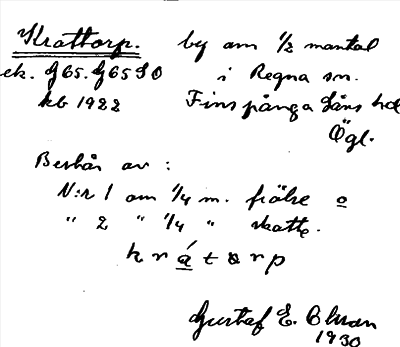 Krattorp. by om 1/2 mantal
ek. G65. G65 SO i Regna sn.
kb 1922 Finspånga läns hd
Ögl.
Består av :
N:r 1 om 1/4 m. frälse o
" 2 " 1/4 " skatte.
k r á t o r p
Gustaf E.
1930